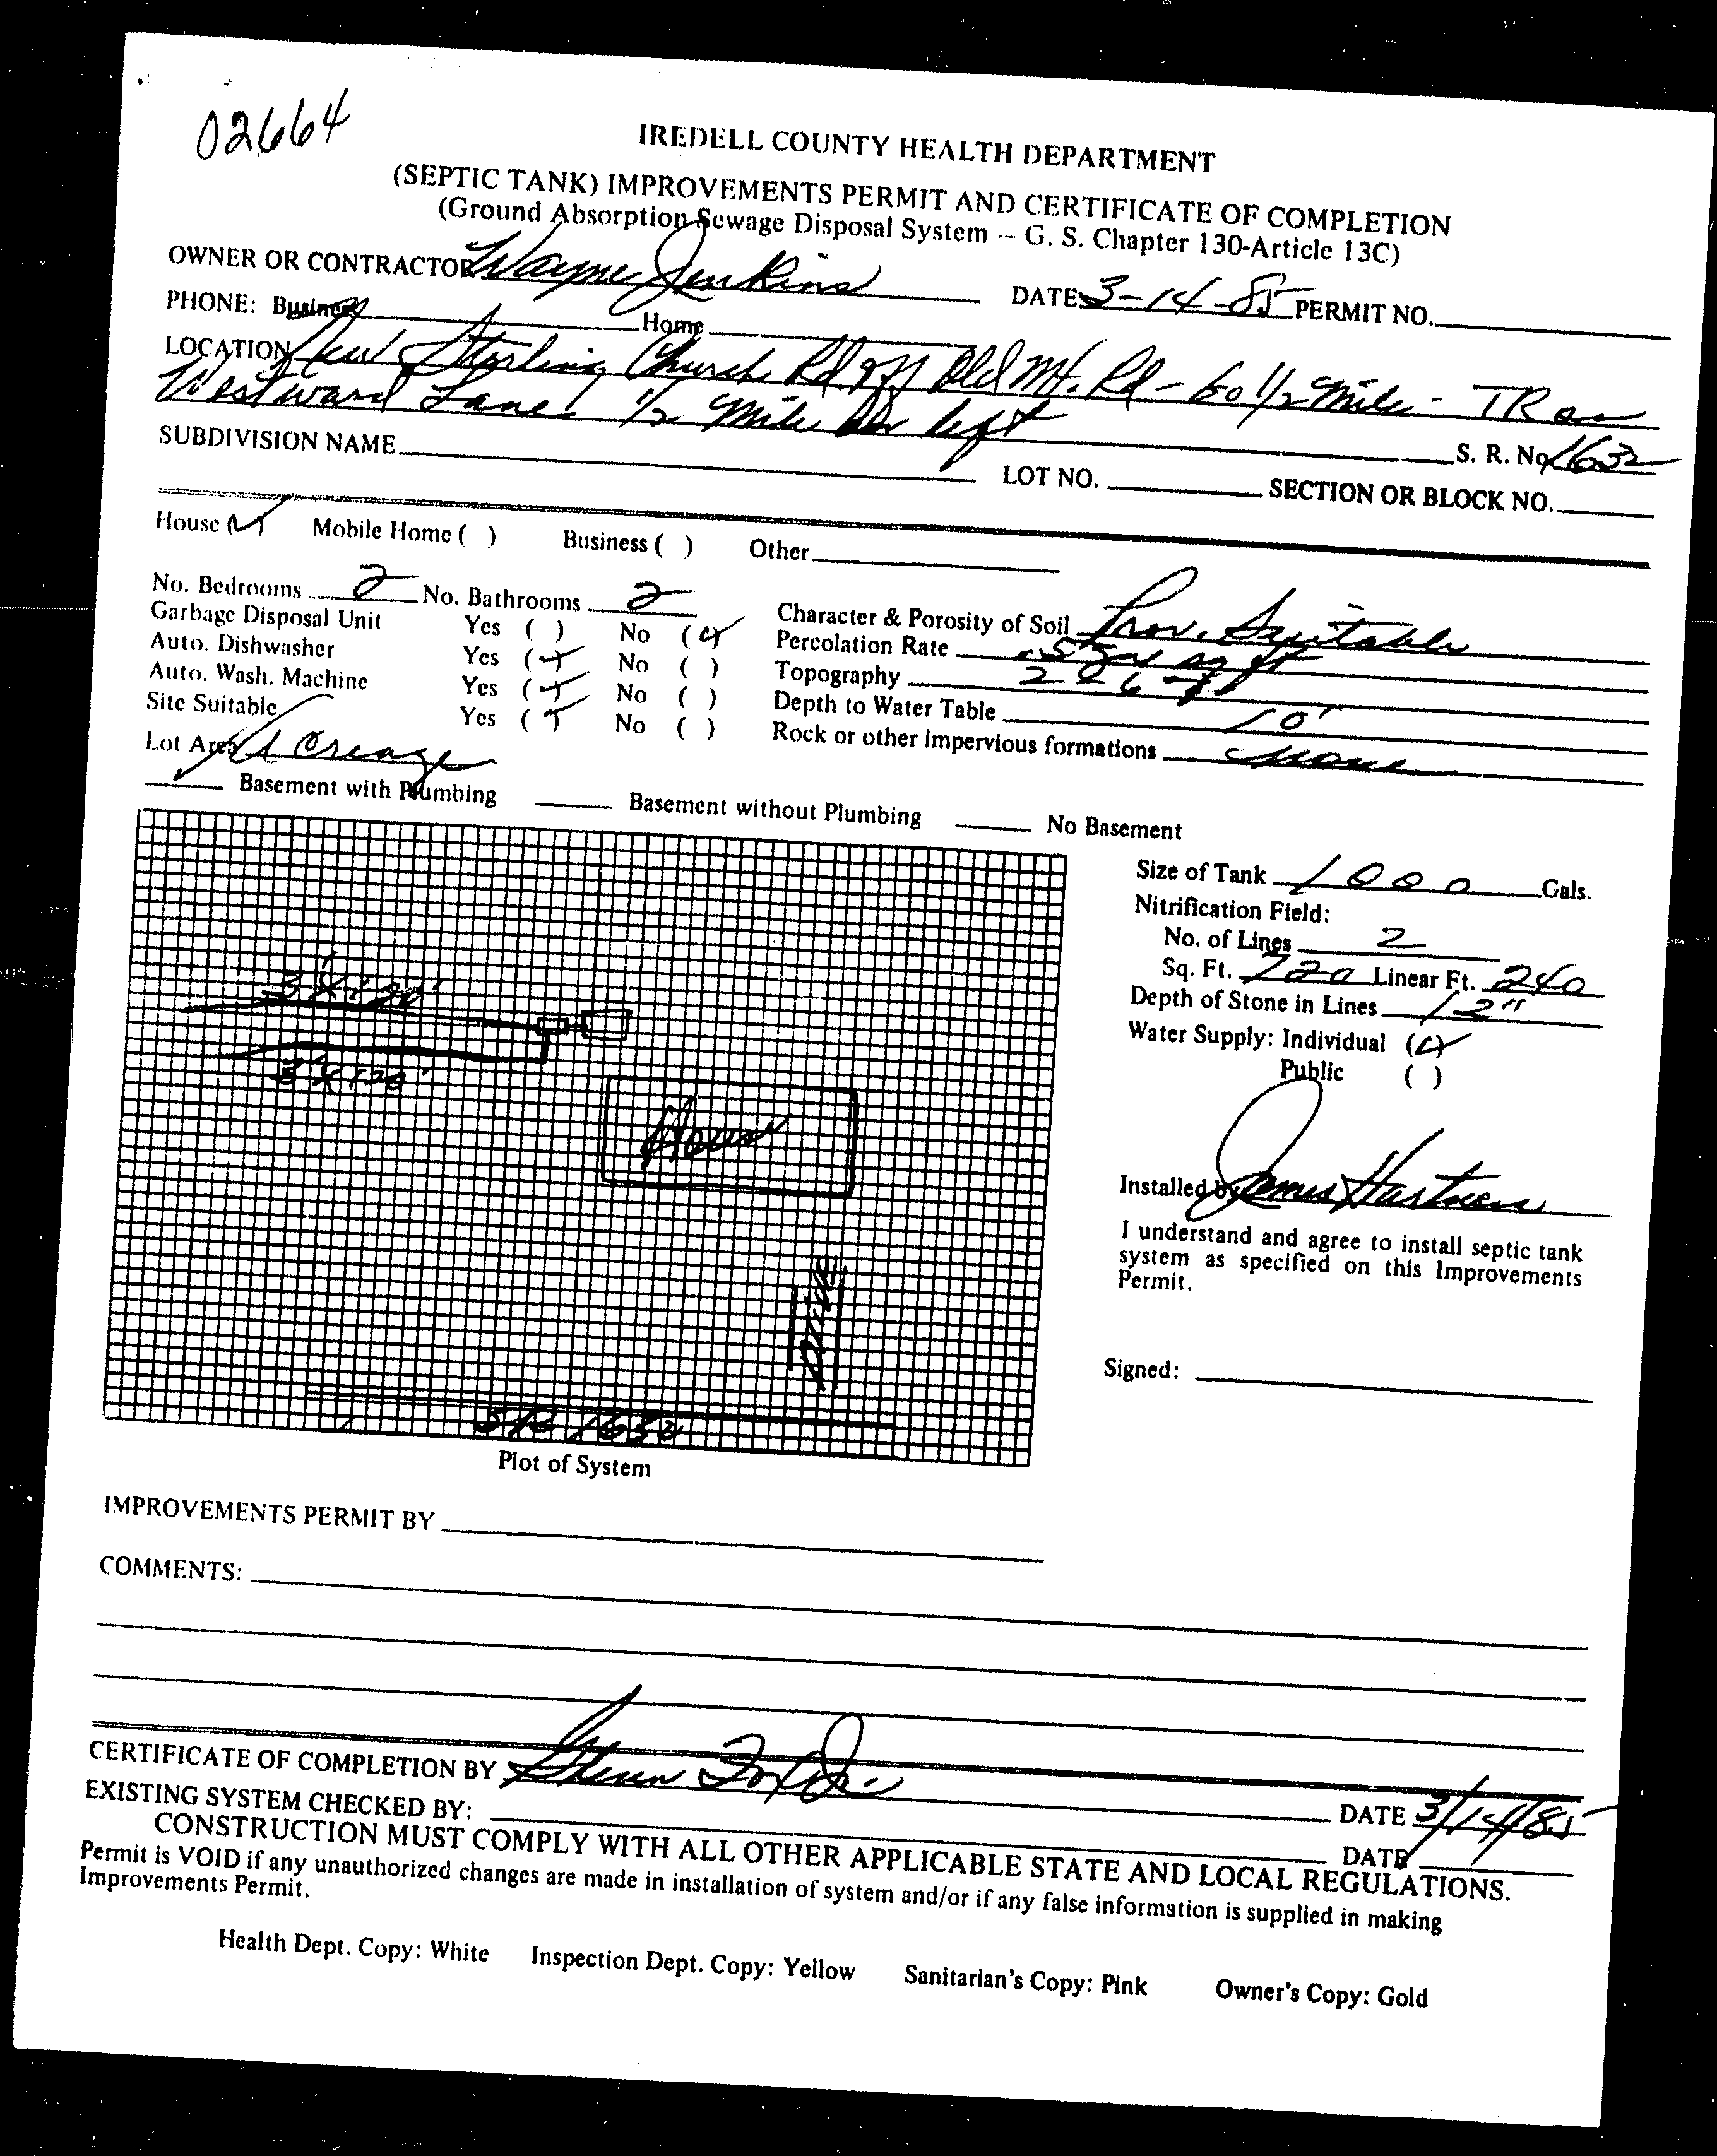 02664
IREDELL COUNTY HEALTH DEPARTMENT
(SEPTIC TANK) IMPROVEMENTS PERMIT AND CERTIFICATE OF COMPLETION
(Ground Absorption Sewage Disposal System -- G. S. Chapter 130-Article 13C)
OWNER OR CONTRACTOR Wayne Jenkins DATE 3-14-85 PERMIT NO.
PHONE: Business Home
LOCATION New Sterling Church Rd off Old Mt. Rd - Go 1/2 Mile - TR on
Westward Lane 1/2 Mile on left
S. R. No 1632
SUBDIVISION NAME LOT NO. SECTION OR BLOCK NO.
House (✓) Mobile Home ( ) Business ( ) Other
No. Bedrooms 2 No. Bathrooms 2
Garbage Disposal Unit Yes ( ) No (✓)
Auto. Dishwasher Yes (✓) No ( )
Auto. Wash. Machine Yes (✓) No ( )
Site Suitable Yes (✓) No ( )
Lot Area Acreage
Character & Porosity of Soil Prov. Suitable
Percolation Rate .5 sq ft
Topography 2-6
Depth to Water Table 10'
Rock or other impervious formations None
✓ Basement with Plumbing Basement without Plumbing No Basement
3'X120'
3'X120'
House
DRIVE
SR 1632
Plot of System
Size of Tank 1000 Gals.
Nitrification Field:
No. of Lines 2
Sq. Ft. 720 Linear Ft. 240
Depth of Stone in Lines 12"
Water Supply: Individual (✓)
Public ( )
Installed by James Hartness
I understand and agree to install septic tank
system as specified on this Improvements
Permit.
Signed:
IMPROVEMENTS PERMIT BY
COMMENTS:
CERTIFICATE OF COMPLETION BY DATE 3/14/85
EXISTING SYSTEM CHECKED BY: DATE
CONSTRUCTION MUST COMPLY WITH ALL OTHER APPLICABLE STATE AND LOCAL REGULATIONS.
Permit is VOID if any unauthorized changes are made in installation of system and/or if any false information is supplied in making
Improvements Permit.
Health Dept. Copy: White Inspection Dept. Copy: Yellow Sanitarian's Copy: Pink Owner's Copy: Gold